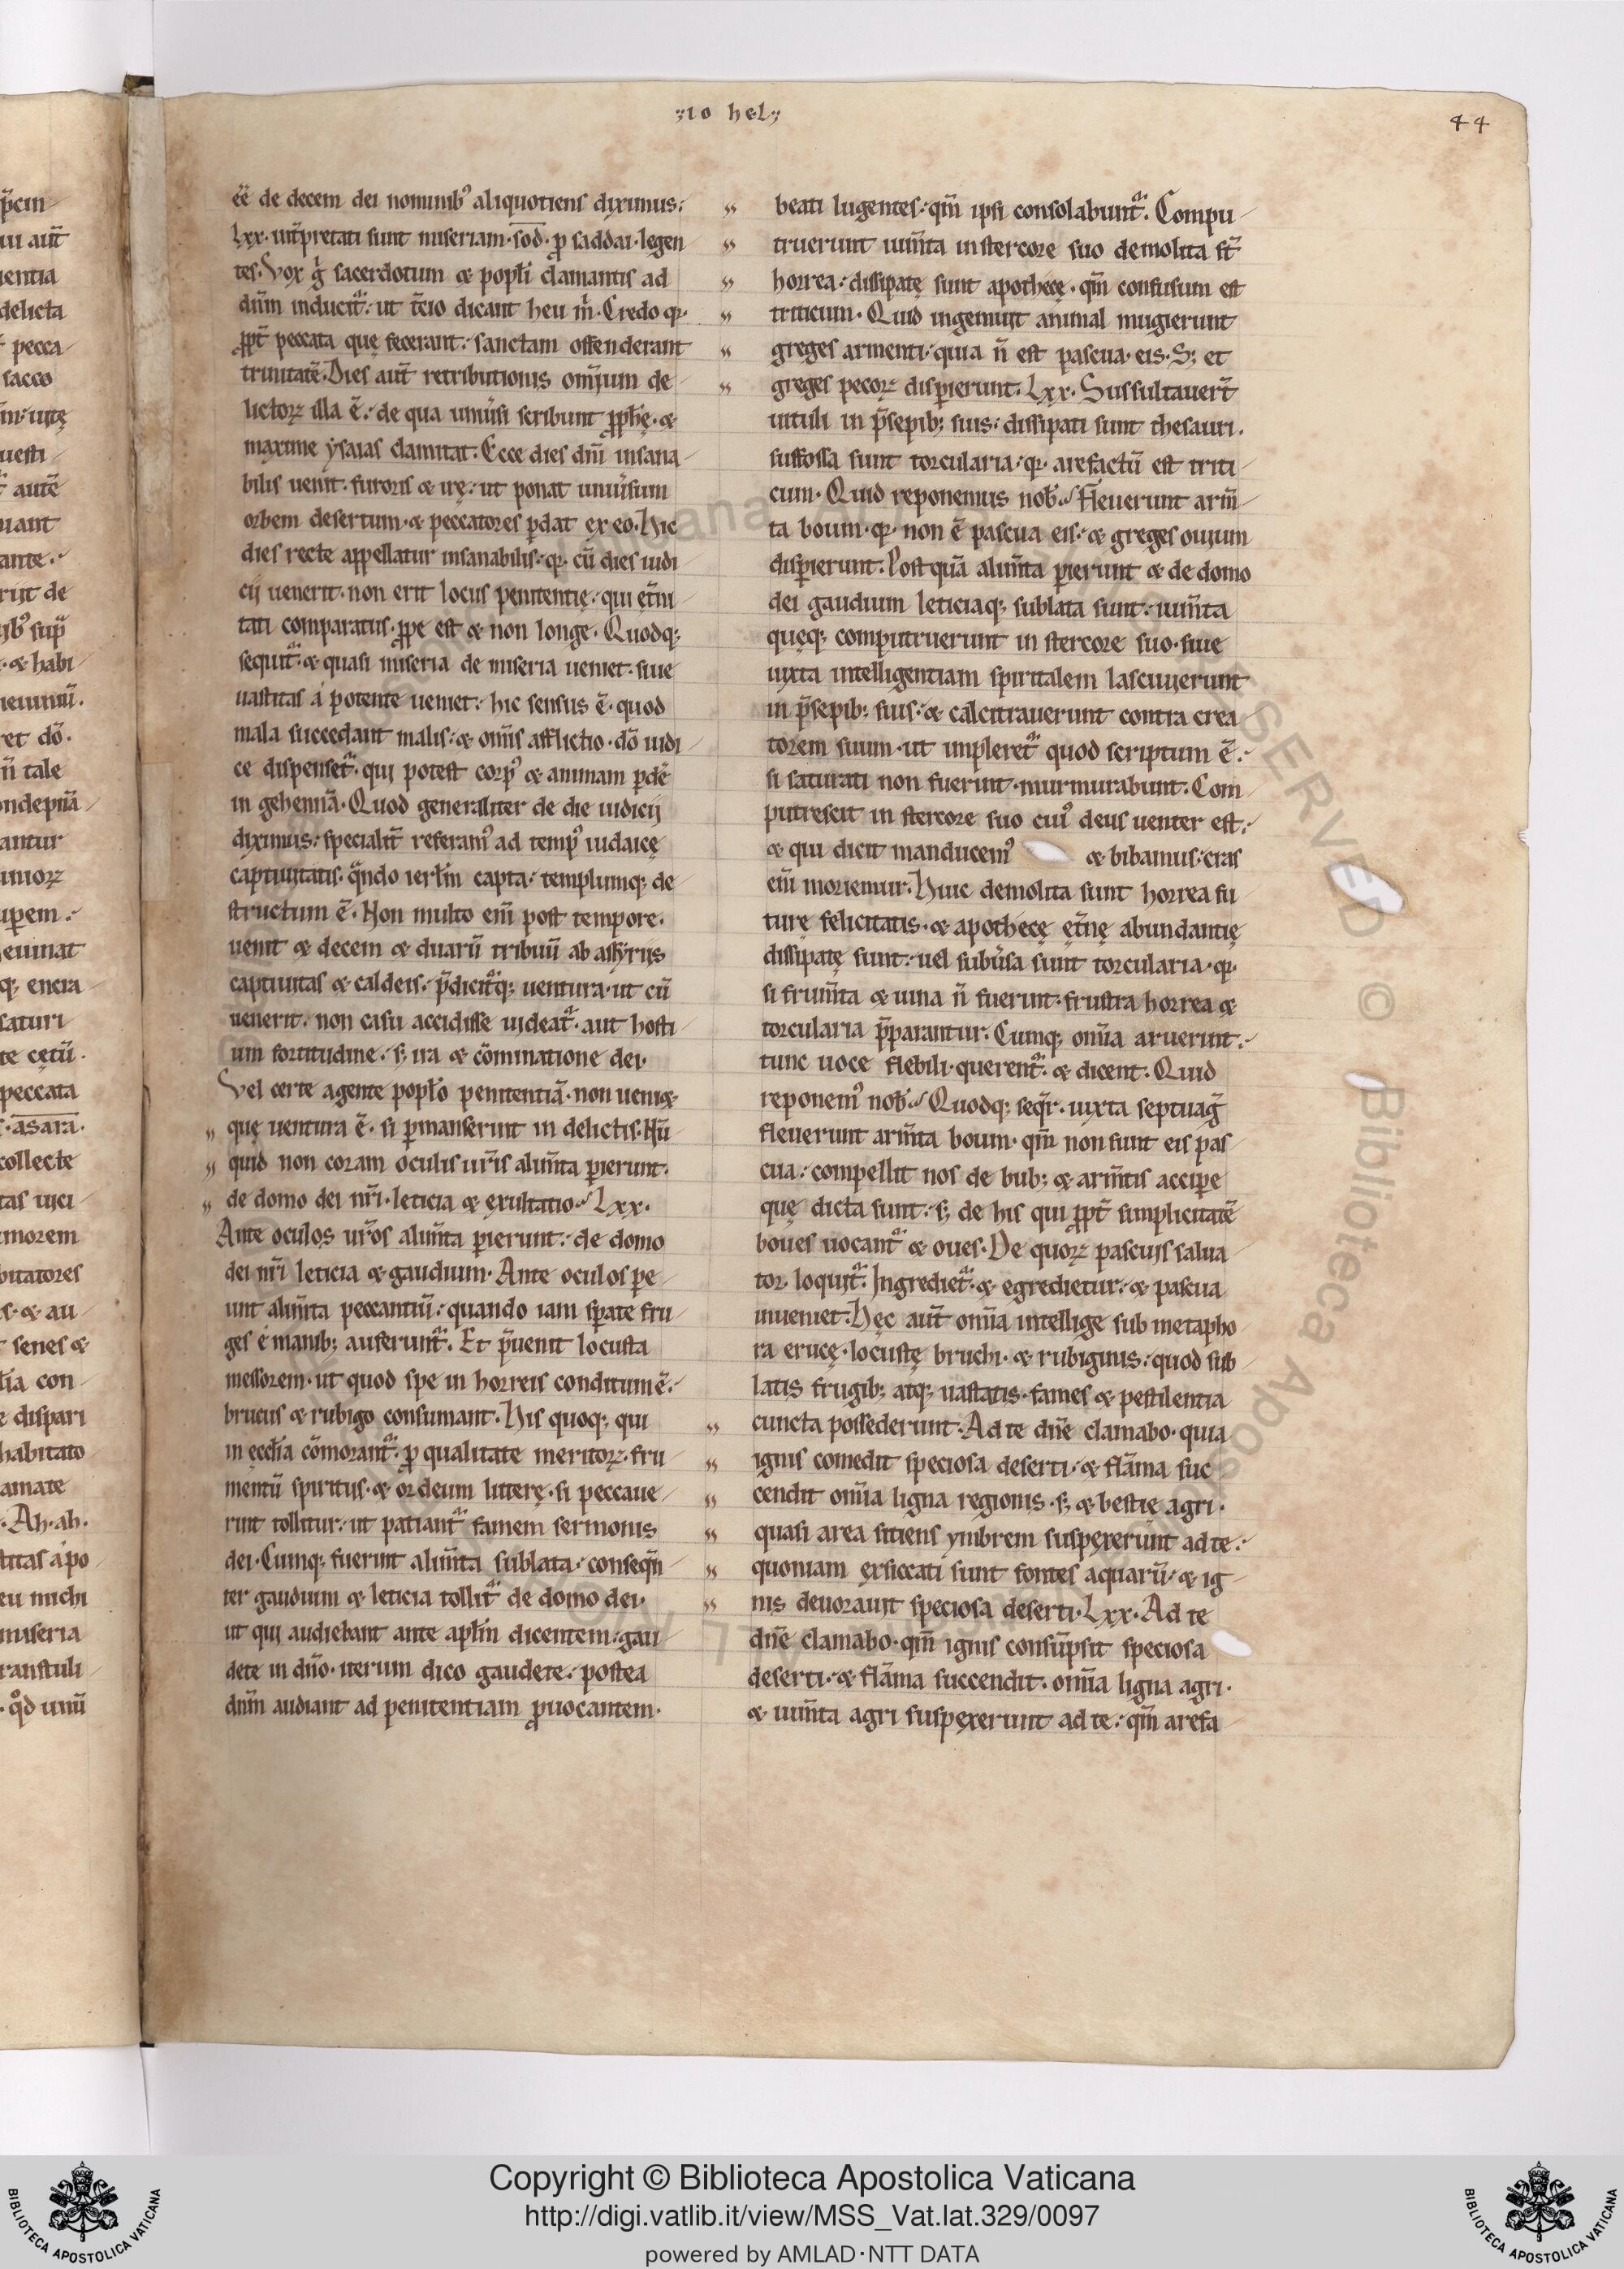 :io hel:
44
p̄cin
ui aut̄
ientia
delicta
pecca
sacco
uesti
autē
uant
ante.
rit de
ẏb᾽ sup̄
& habi
ieiuniū.
et dō.
n̄ tale
antur
uniorꝝ
uperem.
euinat
q; encia
saturi
te cętū.
peccata
asara.
collecte
tas uici
morem
bitatores
s. & au
senes &
tia con
e dispari
habitato
amate
Ah. ah.
titas a po
eu michi
miseria
ranstuli
qd unū
ēē de decem dei nominib᾽ aliquotiens diximus:
Lxx. int̄pretati sunt miseriam. sod. ꝓ saddai. legen
tes. Vox g̊ sacerdotum & popl̄i clamantis ad
dn̄m inducit᷑: ut t̄cio dicant heu m̊. Credo qꝛ
ꝓpt̄ peccata quę fecerant: sanctam offenderant
trinitatē. Dies aut̄ retributionis omnium de
lictorꝝ illa ē: de qua uniūsi scribunt ꝓph̄ę. &
maxime ysaias clamitat. Ecce dies dn̄i insana
bilis uenit. furoris & irę: ut ponat uniūsum
orbem desertum. & peccatores ꝑdat ex eo. Hic
dies recte appellatur insanabilis: qꝛ cū dies iudi
cij uenerit. non erit locus penitentię: qui et̄ni
tati comparatus. ꝓpe est & non longe. Quodq;
sequit᷑. & quasi miseria de miseria ueniet. siue
uastitas a potente ueniet: hic sensus ē. quod
mala succedant malis: & om̄is afflictio. dō iudi
ce dispenset᷑. qui potest corp᾽ & animam ꝑdē
in gehennā. Quod generaliter de die iudicij
diximus: specialit̄ referam᾽ ad temp᾽ iudaicę
captiuitatis. qᵃndo ierl̄m capta: templumq; de
structum ē. Non multo em̄ post tempore.
uenit & decem & duarū tribuū ab assyrijs
captiuitas & caldeis: p̄dicit᷑q; uentura. ut cū
uenerit. non casu accidisse uideat᷑. aut hosti
um fortitudine: s; ira & cōminatione dei.
Vel certe agente popl̄o penitentiā. non ueniæ
„ quę uentura ē. si ꝑmanserint in delictis. Nū
„ quid non coram oculis ur̄is alim̄ta ꝑierunt.
„ de domo dei nr̄i. leticia & exultatio? Lxx.
Ante oculos ur̄os alim̄ta ꝑierunt: de domo
dei nr̄i leticia & gaudium. Ante oculos ꝑe
unt alim̄ta peccantiū: quando iam sꝑate fru
ges e manib; auferunt᷑. Et p̄uenit locusta
messorem. ut quod spe in horreis conditum ē:
brucus & rubigo consumant. His quoq; qui
in eccl̄ia cōmorant᷑. ꝓ qualitate meritorꝝ. fru
mentū spiritus. & ordeum litterę. si peccaue
rint tollitur: ut patiant᷑ famem sermonis
dei. Cumq; fuerint alim̄ta sublata: conseqn̄
ter gaudium & leticia tollit᷑ de domo dei.
ut qui audiebant ante apl̄m dicentem: gau
dete in dn̄o. iterum dico gaudete: postea
dnm̄ audiant ad penitentiam ꝓuocantem.
„ beati lugentes: qm̄ ipsi consolabunt᷑. Compu
„ truerunt ium̄ta in stercore suo demolita st̄
„ horrea: dissipatę sunt apothecę. qm̄ confusum est
„ triticum. Quid ingemuit animal mugierunt
„ greges armenti: quia n̄ est pascua. eis. S; et
„ greges pecorꝝ disꝑierunt. Lxx. Sussultauer̄t
uituli in p̄sepib; suis: dissipati sunt thesauri.
suffossa sunt torcularia: qꝛ arefactū est triti
cum. Quid reponemus nob̄? Fleuerunt arm̄
ta boum. qꝛ non ē pascua eis: & greges ouium
disꝑierunt. Postquā alim̄ta ꝑierunt & de domo
dei gaudium leticiaq; sublata sunt: ium̄ta
quęq; computruerunt in stercore suo. siue
iuxta intelligentiam spiritalem lasciuierunt
in p̄sepib; suis: & calcitrauerunt contra crea
torem suum. ut impleret᷑ quod scriptum ē:
si saturati non fuerint. murmurabunt. Com
putrescit in stercore suo cui᾽ deus uenter est:
& qui dicit manducem᾽ & bibamus: cras
em̄ moriemur. Huic demolita sunt horrea fu
turę felicitatis. & apothecę et̄nę abundantię
dissipatę sunt: uel subūsa sunt torcularia. qꝛ
si frum̄ta & uina n̄ fuerint. frustra horrea &
torcularia p̄parantur. Cumq; omīa aruerunt:
tunc uoce flebili. querent᷑. & dicent. Quid
reponem᾽ nob̄? Quodq; seqr̄. iuxta septuaḡ
fleuerunt arm̄ta boum. qm̄ non sunt eis pas
cua: compellit nos de bub; & arm̄tis accipe
quę dicta sunt: s; de his qui ꝓpt̄ simplicitatē
boues uocant᷑ & oues. De quorꝝ pascuis salua
tor. loquit᷑. Ingrediet᷑. & egredietur: & pascua
inueniet. Hęc aut̄ omīa intellige sub metapho
ra erucę. locustę bruchi. & rubiginis: quod sub
latis frugib; atq; uastatis. fames & pestilentia
„ cuncta possederunt. Ad te dn̄e clamabo. quia
„ ignis comedit speciosa deserti: & flāma suc
„ cendit omīa ligna regionis. s; & bestie agri.
„ quasi area sitiens ymbrem suspexerunt ad te:
„ quoniam exsiccati sunt fontes aquarū. & ig
„ nis deuorauit speciosa deserti. Lxx. Ad te
dn̄e clamabo. qm̄ ignis consūpsit speciosa
deserti. & flāma succendit. omīa ligna agri.
& ium̄ta agri suspexerunt ad te: qm̄ arefa
Copyright © Biblioteca Apostolica Vaticana
http://digi.vatlib.it/view/MSS_Vat.lat.329/0097
powered by AMLAD·NTT DATA
BIBLIOTECA APOSTOLICA VATICANA
BIBLIOTECA APOSTOLICA VATICANA